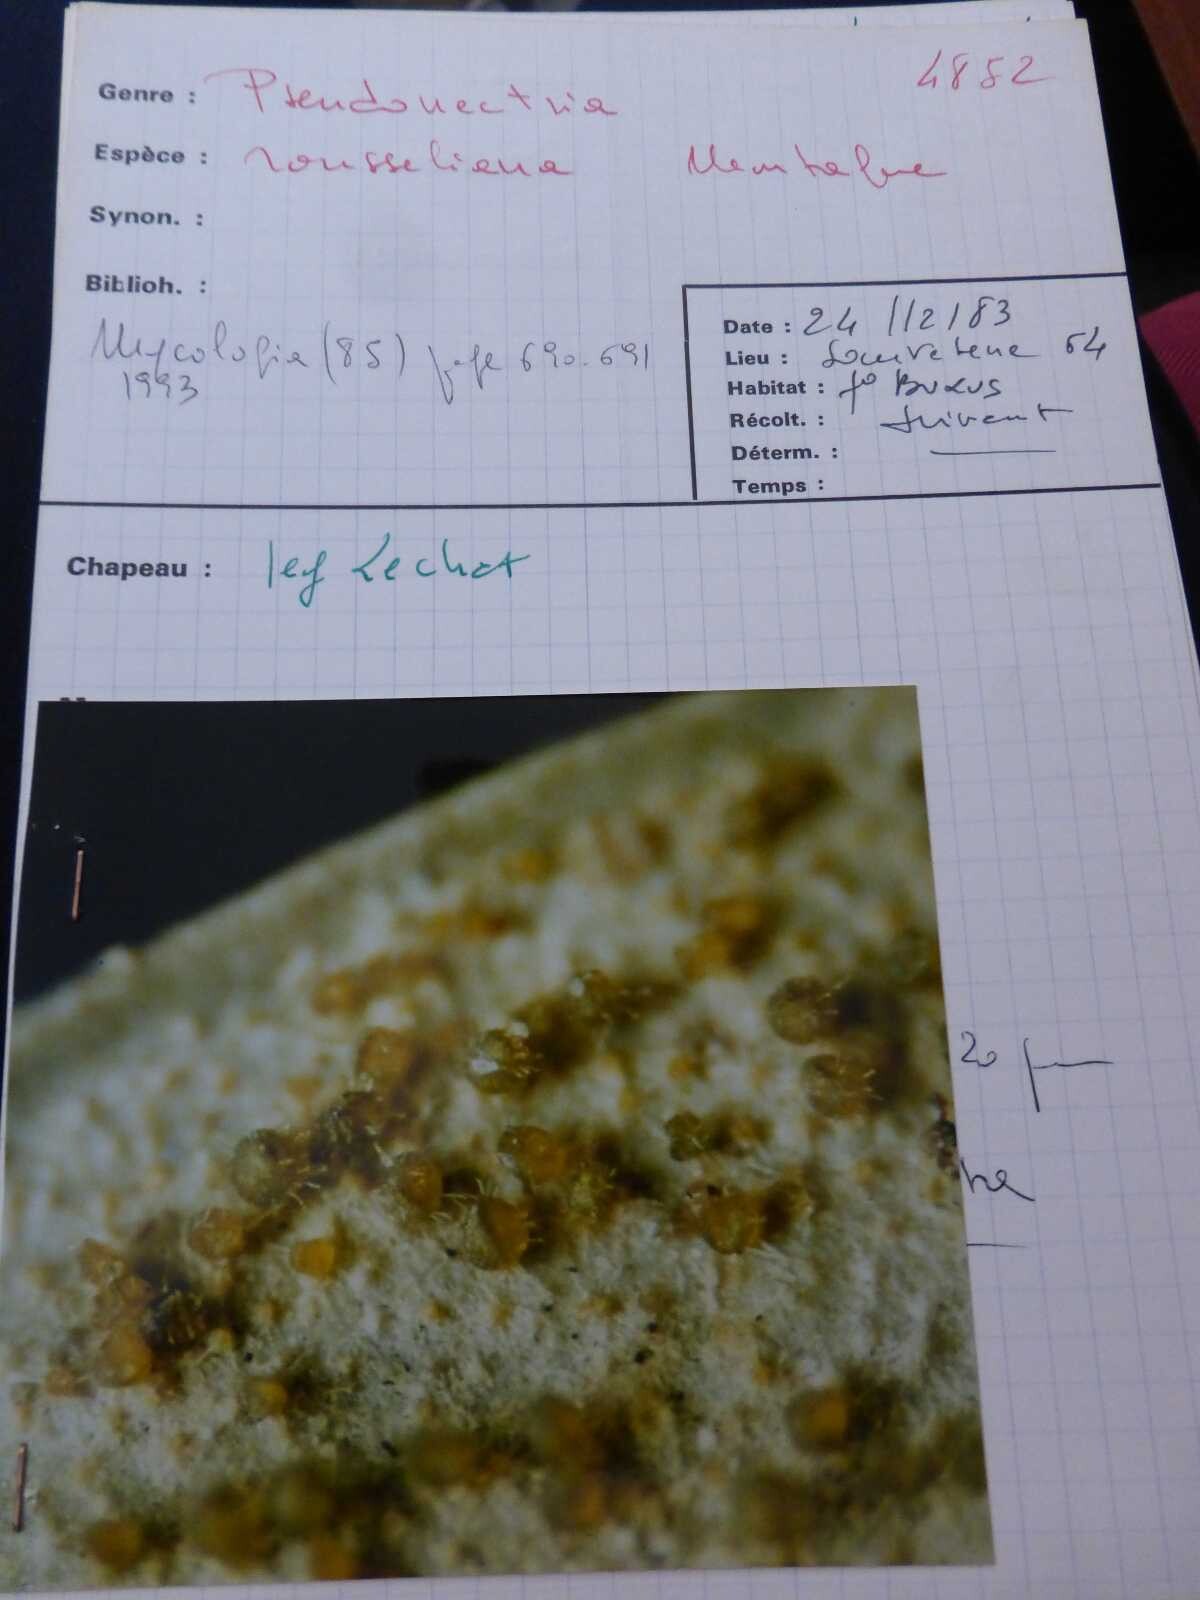 4852
Genre : Pseudonectria
Espèce : rousseliana Montagne
Synon. :
Biblioh. :
Mycologia (85) page 690-691
1993
Date : 24/12/83
Lieu : 64
Habitat : fo Buxus
Récolt. : suivant
Déterm. :
Temps :
Chapeau : leg Lechat
20 µm